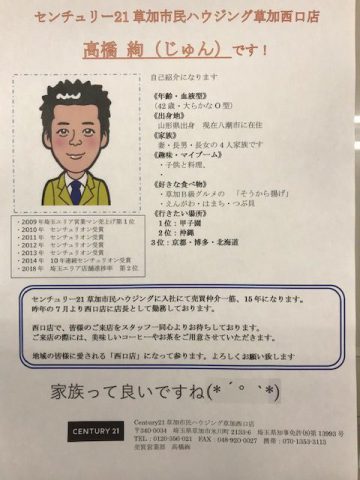 センチュリー21 草加市民ハウジング草加西口店
高橋 絢（じゅん）です！
自己紹介になります
《年齢・血液型》
（42歳・大らかなO型）
《出身地》
山形県出身　現在八潮市に在住
《家族》
妻・長男・長女の4人家族です
《趣味・マイブーム》
・子供と料理、
・
《好きな食べ物》
・草加B級グルメの　「そうから揚げ」
・えんがわ・はまち・つぶ貝
《行きたい場所》
1位：甲子園
2位：沖縄
3位：京都・博多・北海道
・2009年埼玉エリア営業マン売上げ第1位
・2010年　センチュリオン受賞
・2011年　センチュリオン受賞
・2012年　センチュリオン受賞
・2013年　センチュリオン受賞
・2014年　10年連続センチュリオン受賞
・2018年　埼玉エリア店舗進捗率　第2位
センチュリー21 草加市民ハウジングに入社にて売買仲介一筋、15年になります。
昨年の7月より西口店に店長として勤務しております。
西口店で、皆様のご来店をスタッフ一同心よりお待ちしております。
ご来店の際には、美味しいコーヒーやお茶をご用意させていただきます。
地域の皆様に愛される「西口店」になって参ります。よろしくお願い致します
家族って良いですね(*´゜`*)
CENTURY 21
Century21 草加市民ハウジング草加西口店
〒340-0034　埼玉県草加市氷川町2133-6　埼玉県知事免許(8)第13993号
TEL：0120-356-021　FAX：048-920-0027　携帯：070-1353-3113
売買営業部　高橋絢